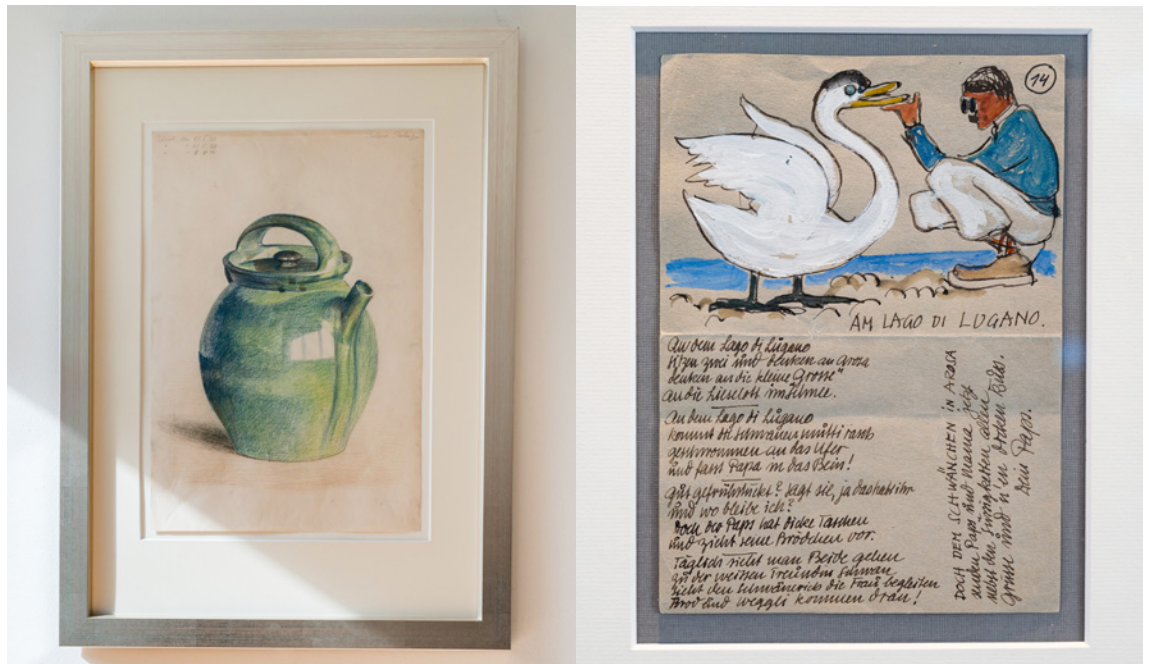 14
AM LAGO DI LUGANO.
An dem Lago di Lugano
sitzen zwei und denken an Arosa
denken an die kleine "Grosse"
an die Lieselott im Schnee.
An dem Lago di Lugano
kommt die Schwanenmutti rasch
geschwommen an das Ufer
und fasst Papa in das Bein!
gut gefrühstückt? sagt sie, ja das habt ihr
und wo bleibe ich?
Doch der Paps hat dicke Taschen
und zieht seine Brödchen vor.
Täglich sieht man Beide gehen
zu der weissen Freundin Schwan
sieht den Schwanerich die Frau begleiten
Brot und Weggli kommen dran!
DOCH DEM SCHWÄNCHEN IN AROSA
senden Paps und Mama jetzt
nebst den Süssigkeiten allen
Grüsse und n'en dicken Kuss.
Dein Paps.